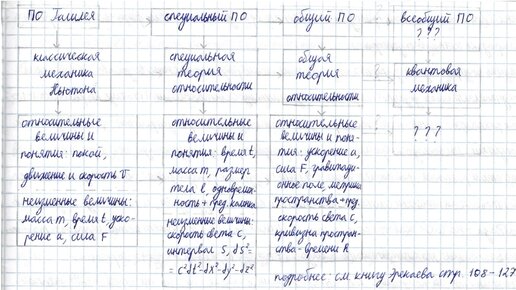 ПО Галилея
специальный ПО
общий ПО
всеобщий ПО
? ? ?
классическая
механика
Ньютона
специальная
теория
относительности
общая
теория
относительности
?
квантовая
механика
относительные
величины и
понятия: покой,
движение и скорость v
неизменные величины:
масса m, время t, уско-
рение a, сила F
относительные
величины и
понятия: время t,
масса m, размер
тела l, одновремен-
ность + пред. колонка
неизменные величины:
скорость света c,
интервал S, dS²=
= c²dt²-dx²-dy²-dz²
относительные
величины и поня-
тия: ускорение a,
сила F, гравитаци-
онное поле, метрика
пространства + пред.
скорость света c,
кривизна простран-
ства-времени R
? ? ?
подробнее: см книгу Эрекаева стр. 108-127